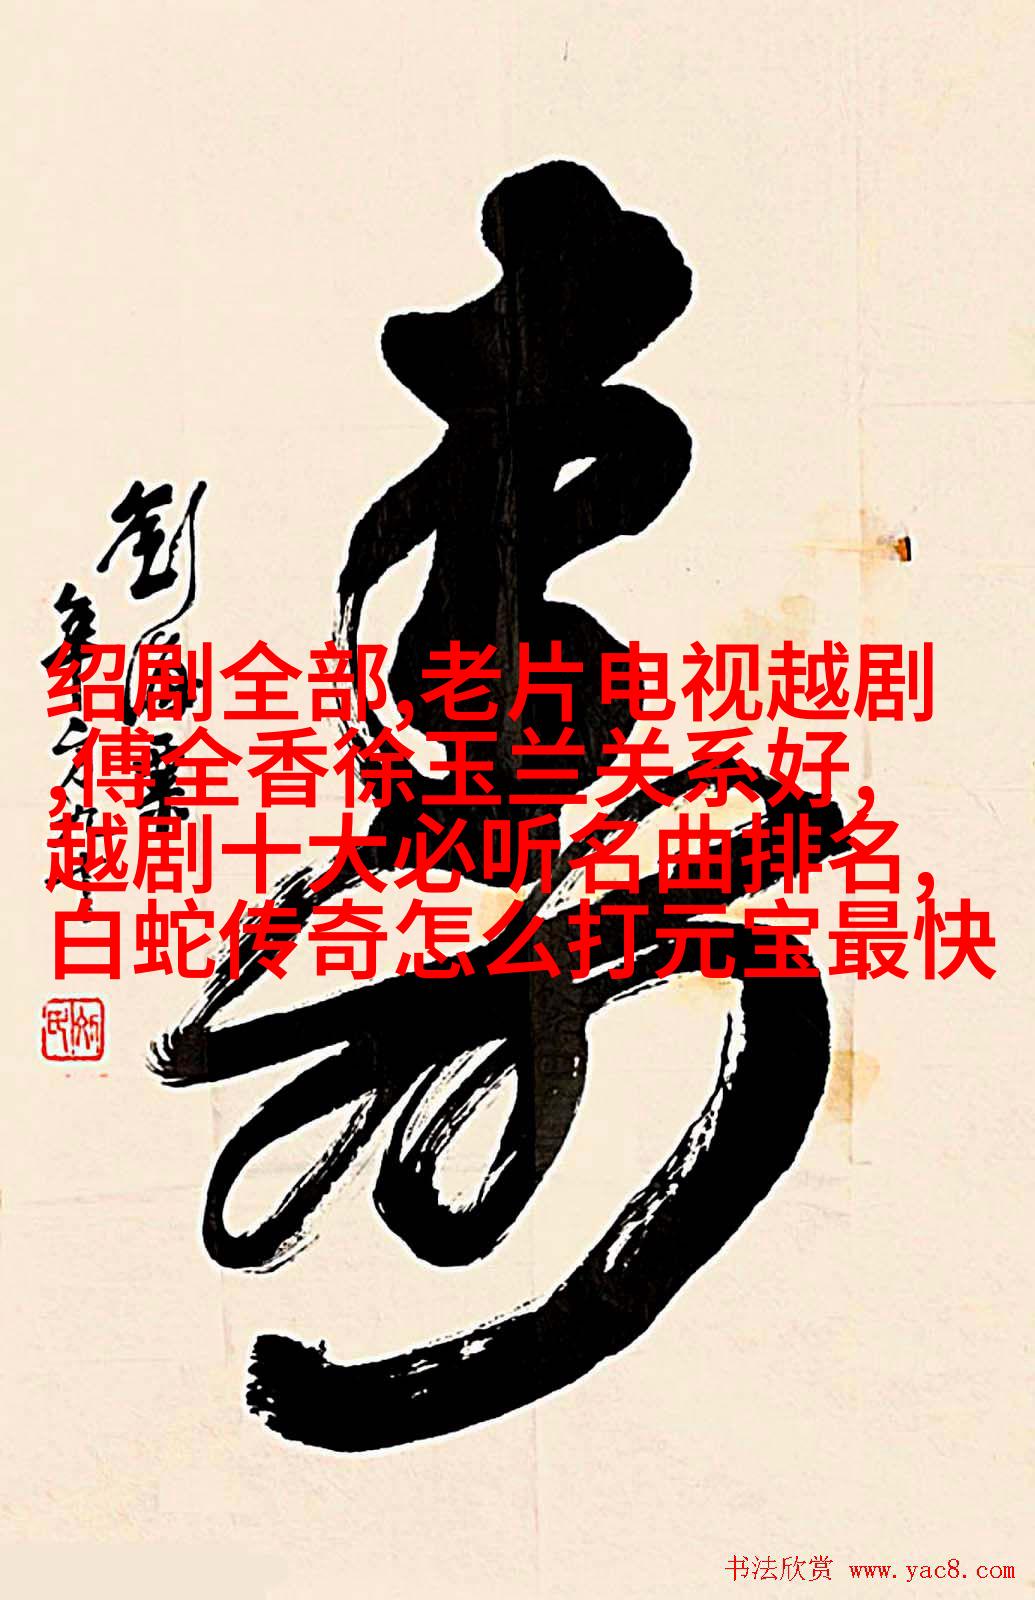 寿
绍剧全部,老片电视越剧
,傅全香徐玉兰关系好,
越剧十大必听名曲排名,
白蛇传奇怎么打元宝最快
书法欣赏 www.yac8.com